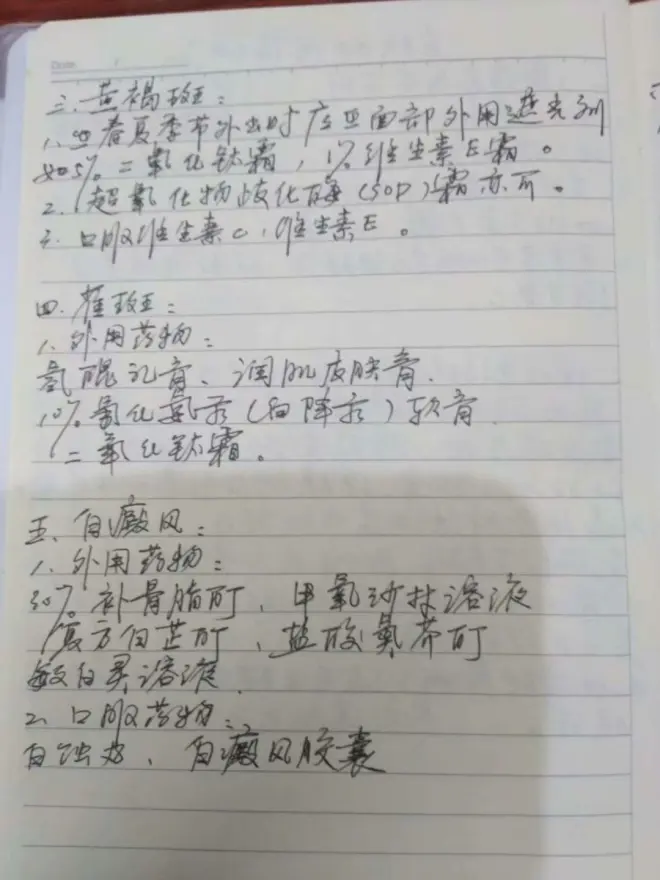 Date
三. 黄褐斑：
1. 在春夏季节外出时应在面部外用遮光剂
如5% 二氧化钛霜，1% 维生素E霜。
2. 超氧化物歧化酶(SOD)霜亦可。
3. 口服维生素C，维生素E。
四. 雀斑：
1. 外用药物：
氢醌乳膏、润肌皮肤膏.
10% 氯化氨汞（白降汞）软膏
二氧化钛霜。
五. 白癜风：
1. 外用药物：
30% 补骨脂酊、甲氧沙林溶液
复方白芷酊、盐酸氮芥酊
敏白灵溶液.
2. 口服药物：
白蚀丸、白癜风胶囊